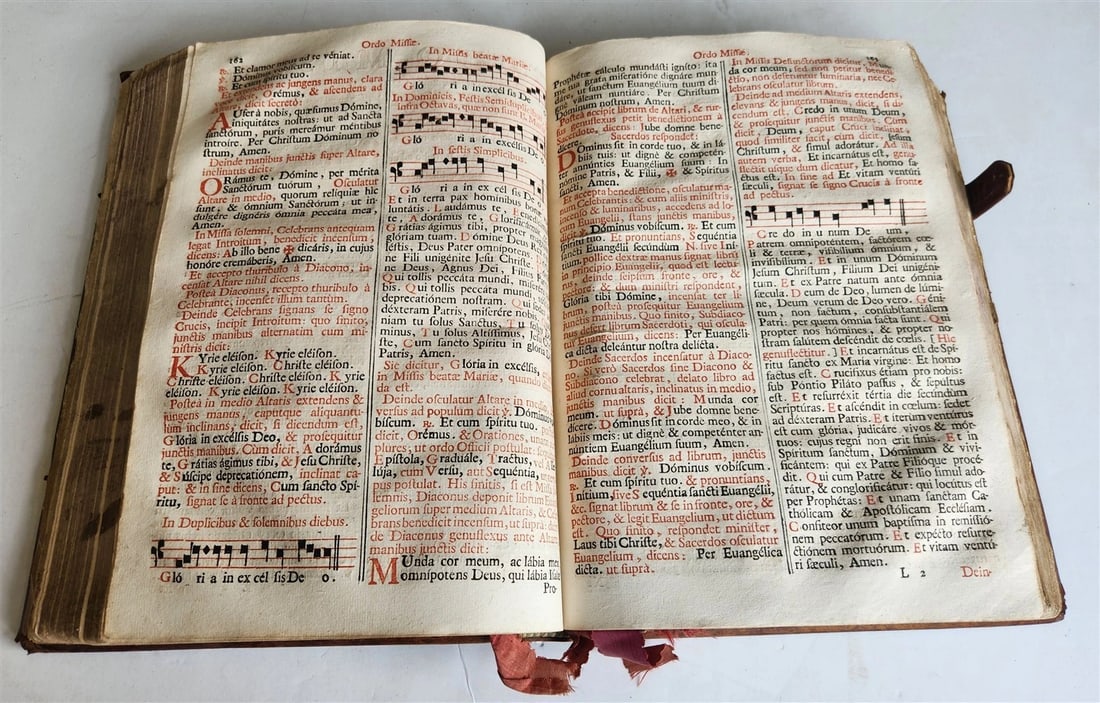 182
Ordo Missæ.
℟. Et clamor meus ad te véniat.
℣. Dóminus vobiscum.
℟. Et cum spíritu tuo.
Et ac jungens manus, clara
voce dicit, Orémus, & ascendens ad
Altare, dicit secretò:
AUfer à nobis, quæsumus Dómine,
iniquitátes nostras: ut ad Sancta
sanctórum, puris mereámur méntibus
introíre. Per Christum Dóminum no-
strum, Amen.
Deinde manibus junctis super Altare,
inclinatus dicit:
ORámus te, Dómine, per mérita
Sanctórum tuórum, Osculatur
Altare in medio, quorum relíquiæ hic
sunt, & ómnium Sanctórum: ut in-
dulgére dignéris ómnia peccáta mea,
Amen.
In Missa solemni, Celebrans antequam
legat Introitum, benedicit incensum,
dicens: Ab illo bene ✠ dicáris, in cujus
honóre cremáberis, Amen.
Et accepto thuribulo à Diacono, in-
censat Altare nihil dicens.
Postea Diaconus, recepto thuribulo à
Celebrante, incenset illum tantùm.
Deinde Celebrans signans se signo
Crucis, incipit Introitum: quo finito,
junctis manibus alternatim cum mi-
nistris dicit:
KYrie eléison. Kyrie eléison.
Kyrie eléison. Christe eléison.
Christe eléison. Christe eléison. Kyrie
eléison. Kyrie eléison. Kyrie eléison.
Postea in medio Altaris extendens &
jungens manus, caputque aliquantu-
lum inclinans, dicit, si dicendum est,
Glória in excélsis Deo, & prosequitur
junctis manibus. Cum dicit, Adorámus
te, Grátias ágimus tibi, & Jesu Christe,
& Súscipe deprecatiónem, inclinat ca-
put: & in fine dicens, Cum sancto Spí-
ritu, signat se à fronte ad pectus.
In Duplicibus & solemnibus diebus.
Gló ri a in ex cél sis De o.
In Missis beatæ Mariæ,
Gló ri a in excélsis De
In Dominicis, Festis Semiduplic
infra Octavas, quæ non sunt
Gló ri a in excélsis De
In festis Simplicibus.
Gló ri a in ex cél sis De
Et in terra pax homínibus bonæ
luntátis. Laudámus te,
te, Adorámus te, Glorificá
Grátias ágimus tibi, propter
glóriam tuam: Dómine Deus R
léstis, Deus Pater omnípotens.
ne Fili unigénite Jesu Christe
ne Deus, Agnus Dei, Fílius
Qui tollis peccáta mundi, misere
bis. Qui tollis peccáta mundi,
deprecatiónem nostram. Qui
déxteram Patris, miserére nobis
niam tu solus Sanctus, Tu solus
minus, Tu solus Altíssimus, Jesu
ste, Cum sancto Spíritu in glória
Patris, Amen.
Sic dicitur, Glória in excélsis,
in Missis beatæ Mariæ, quando
da est.
Deinde osculatur Altare in medio
versus ad populum dicit ℣. Dóminus
bíscum. ℟. Et cum spíritu tuo.
dicit, Orémus. & Orationes, unam
plures: ut ordo Officii postulat:
Epístola, Graduále, Tractus, vel Al
lúja, cum Versu, aut Sequéntia,
pus postulat. His finitis, si est Mis
lemnis, Diaconus deponit librum
geliorum super medium Altaris, & C
brans benedicit incensum, ut suprà:
de Diaconus genuflexus ante Altare
manibus junctis dicit:
MUnda cor meum, ac lábia mea
omnípotens Deus, qui lábia Isa
Pro-
Ordo Missæ.
Prophétæ cálculo mundásti igníto: ita
me tua grata miseratióne dignáre mun-
dáre, ut sanctum Euangélium tuum di-
gnè váleam nuntiáre. Per Christum
Dóminum nostrum, Amen.
Postea accipit librum de Altari, & rur-
sus genuflexus petit benedictionem à
Sacerdote, dicens: Jube domne bene-
dícere.
Sacerdos respondet:
DOminus sit in corde tuo, & in lá-
biis tuis: ut dignè & competén-
ter annúnties Euangélium suum: In
nómine Patris, & Fílii, ✠ & Spíritus
sancti, Amen.
Et accepta benedictione, osculatur ma-
num Celebrantis: & cum aliis ministris,
incenso & luminaribus, accedens ad lo-
cum Euangelii, stans junctis manibus,
dicit: Dóminus vobíscum. ℟. Et cum
spíritu tuo. Et pronuntians, Sequéntia
sancti Euangélii secundùm N. sive Ini-
tium, pollice dextræ manus signat librum
in principio Euangelii, quod est lectu-
rus, deinde seipsum in fronte, ore, &
pectore: & dum ministri respondent,
Glória tibi Dómine, incensat ter li-
brum, postea prosequitur Euangelium
junctis manibus. Quo finito, Subdiaco-
nus defert librum Sacerdoti, qui oscula-
tur Euangelium, dicens: Per Euangéli-
ca dicta deleántur nostra delícta.
Deinde Sacerdos incensatur à Diaco-
no. Si verò Sacerdos sine Diacono &
Subdiacono celebrat, delato libro ad
aliud cornu altaris, inclinatus in medio,
junctis manibus dicit: Munda cor
meum. ut suprà, & Jube domne bene-
dícere. Dóminus sit in corde meo, & in
lábiis meis: ut dignè & competénter an-
núntiem Euangélium suum, Amen.
Deinde conversus ad librum, junctis
manibus dicit ℣. Dóminus vobíscum.
℟. Et cum spíritu tuo. & pronuntians,
Inítium, sive Sequéntia sancti Euangélii,
&c. signat librum & se in fronte, ore, &
pectore, & legit Euangelium, ut dictum
est. Quo finito, respondet minister,
Laus tibi Christe, & Sacerdos osculatur
Euangelium, dicens: Per Euangélica
dicta. ut suprà.
In Missis Defunctorum dicitur, Mun-
da cor meum, sed non petitur benedi-
ctio, non deferuntur luminaria, nec Ce-
lebrans osculatur librum.
Deinde ad medium Altaris extendens,
elevans & jungens manus, dicit, si di-
cendum est, Credo in unum Deum,
& prosequitur junctis manibus. Cum
dicit, Deum, caput Cruci inclinat,
quod similiter facit, cum dicit, Jesum
Christum, & simul adorátur. Ad illa
autem verba, Et incarnátus est, genu-
flectit usque dum dicatur, Et homo fa-
ctus est. In fine ad Et vitam ventúri
sǽculi, signat se signo Crucis à fronte
ad pectus.
Cre do in u num De um.
Patrem omnipoténtem, factórem cœ-
li & terræ, visibílium ómnium, &
invisibílium. Et in unum Dóminum
Jesum Christum, Fílium Dei unigéni-
tum. Et ex Patre natum ante ómnia
sǽcula. Deum de Deo, lumen de lúmi-
ne, Deum verum de Deo vero. Géni-
tum, non factum, consubstantiálem
Patri: per quem ómnia facta sunt. Qui
propter nos hómines, & propter no-
stram salútem descéndit de cœlis. [Hic
genuflectitur.] Et incarnátus est de Spí-
ritu sancto ex María vírgine: Et homo
factus est. Crucifíxus étiam pro nobis:
sub Póntio Piláto passus, & sepúltus
est. Et resurréxit tértia die secúndum
Scriptúras. Et ascéndit in cœlum: sedet
ad déxteram Patris. Et íterum ventúrus
est cum glória, judicáre vivos & mór-
tuos: cujus regni non erit finis. Et in
Spíritum sanctum, Dóminum & vivi-
ficántem: qui ex Patre Filióque procé-
dit. Qui cum Patre & Fílio simul ado-
rátur, & conglorificátur: qui locútus est
per Prophétas: Et unam sanctam Ca-
thólicam & Apostólicam Ecclésiam.
Confíteor unum baptísma in remissió-
nem peccatórum. Et expécto resurre-
ctiónem mortuórum. Et vitam ventú-
ri sǽculi, Amen.
L 2
Dein-